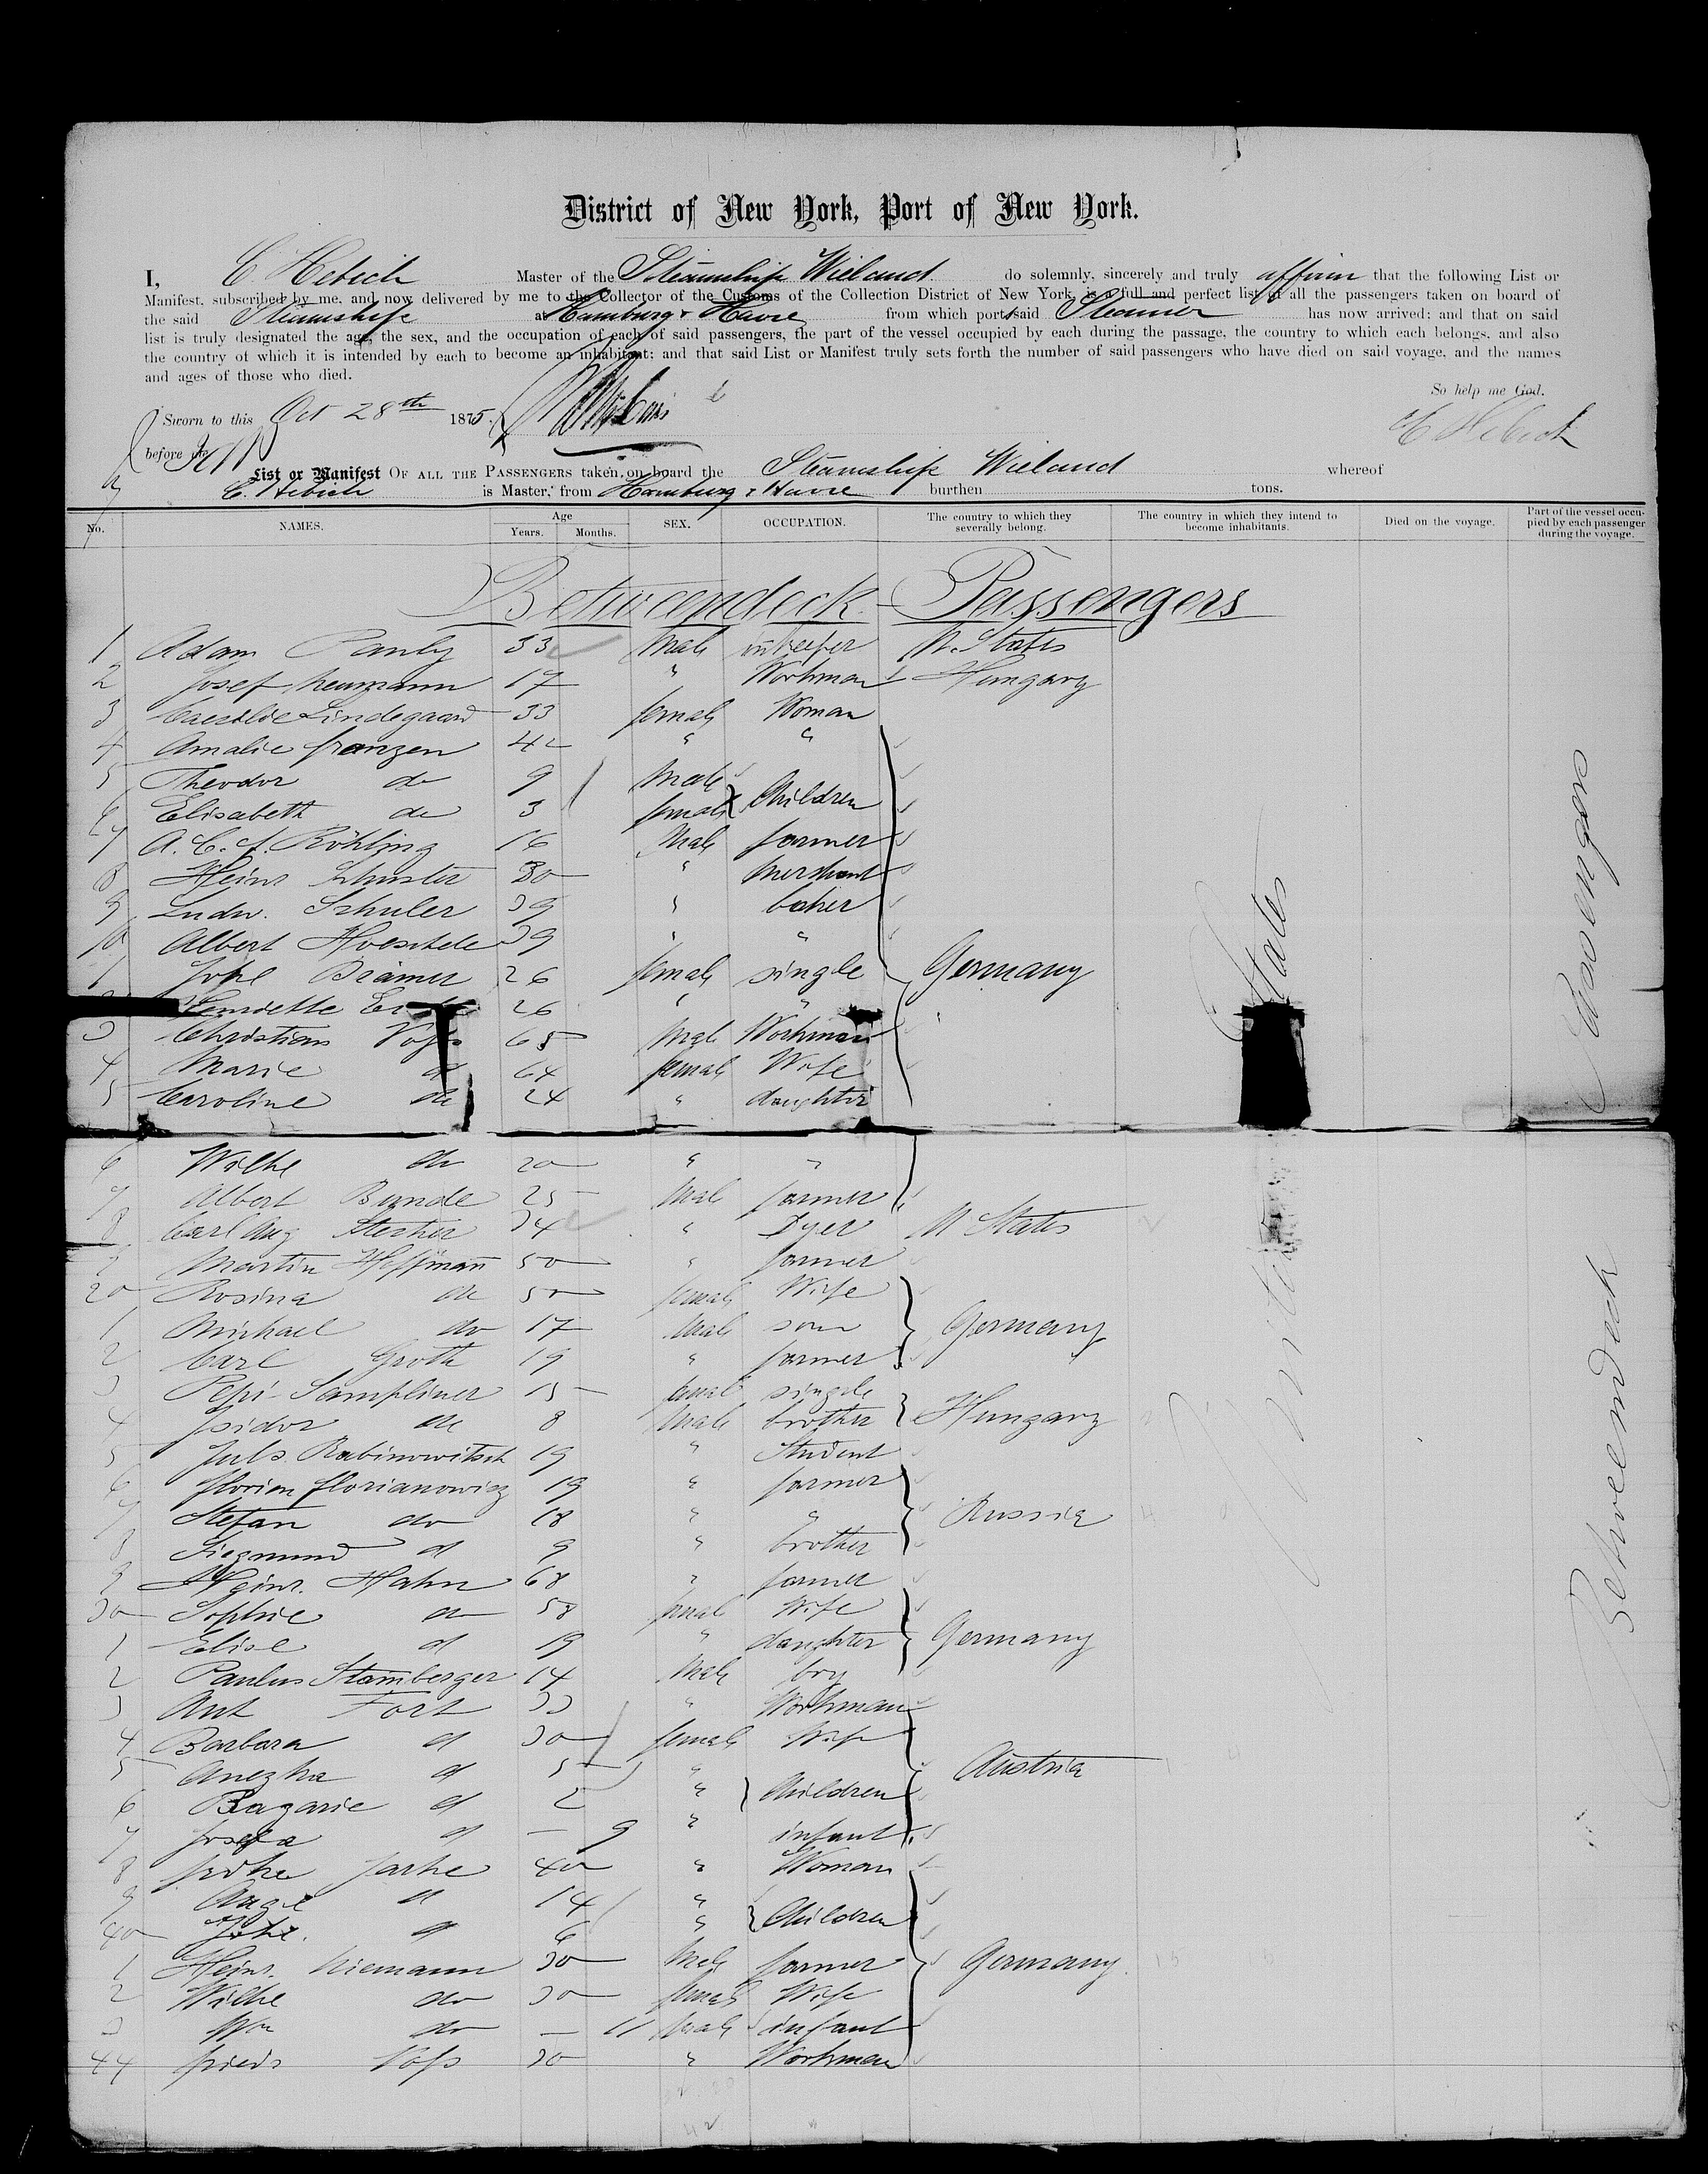 District of New York, Port of New York.
I, C Hebich Master of the Steamship Wieland do solemnly, sincerely and truly affirm that the following List or
Manifest, subscribed by me, and now delivered by me to the Collector of the Customs of the Collection District of New York, is a full and perfect list of all the passengers taken on board of
the said Steamship at Hamburg & Havre from which port said Steamer has now arrived; and that on said
list is truly designated the age, the sex, and the occupation of each of said passengers, the part of the vessel occupied by each during the passage, the country to which each belongs, and also
the country of which it is intended by each to become an inhabitant; and that said List or Manifest truly sets forth the number of said passengers who have died on said voyage, and the names
and ages of those who died.
So help me God.
Sworn to this Oct 28th 1875
C Hebich
before me
List or Manifest OF ALL THE PASSENGERS taken on board the Steamship Wieland whereof
C. Hebich is Master, from Hamburg & Havre burthen tons.
No. NAMES. Age Years. Months. SEX. OCCUPATION. The country to which they severally belong. The country in which they intend to become inhabitants. Died on the voyage. Part of the vessel occupied by each passenger during the voyage.
Betweendeck Passengers
1 Adam Pauly 33 Male inkeeper U. States
2 Josef Neumann 17 " Workman Hungary
3 Caecilie Lindegaard 33 female Woman
4 Amalie Franzen 42 " "
5 Theodor do 9 Male
6 Elisabeth do 3 female Children
7 A. C. f. Röhling 16 Male farmer
8 Heinr Schuster 30 " Merchant
9 Ludw. Schuler 39 " baker
10 Albert 39 " "
1 Joh. Brämer 26 female single Germany
Henriette 26 " "
3 Christian Vofs 65 Male Workman
4 Marie d 64 female Wife
5 Caroline do 24 " daughter
6 Wilhe do 20 " "
7 Albert Bunde 25 Male farmer
8 Carl Aug 34 " Dyer U States
9 Martin Hoffmann 50 " farmer
20 Rosina do 50 female Wife
1 Michael do 17 Male son Germany
2 Carl Groth 19 " farmer
3 Pepi Sampliner 15 female single
4 Isidor do 8 Male brother Hungary
5 Juls. Rabinowitsch 19 " Student
6 Florian Florianowicz 19 " farmer
7 Stefan do 18 " " Russia
8 Siegmund d 9 " brother
9 Heinr. Hahn 68 " farmer
30 Sophie do 58 female Wife
1 Elise d 19 " daughter Germany
2 Paulus Stamberger 14 Male boy
3 Ant Fort 33 " Workman
4 Barbara d 30 female Wife
5 Anezka d 5 " Austria
6 d 2 " Children
7 Josefa d — 9 " infant
8 40 " Woman
9 d 14 "
40 Joh. d 6 " Children
1 Heinr. Niemann 30 Male farmer Germany
2 Wilhe do 30 female Wife
3 Wm do — 11 Male infant
44 Frieds Vofs 30 " Workman
United States
Betweendeck Passengers